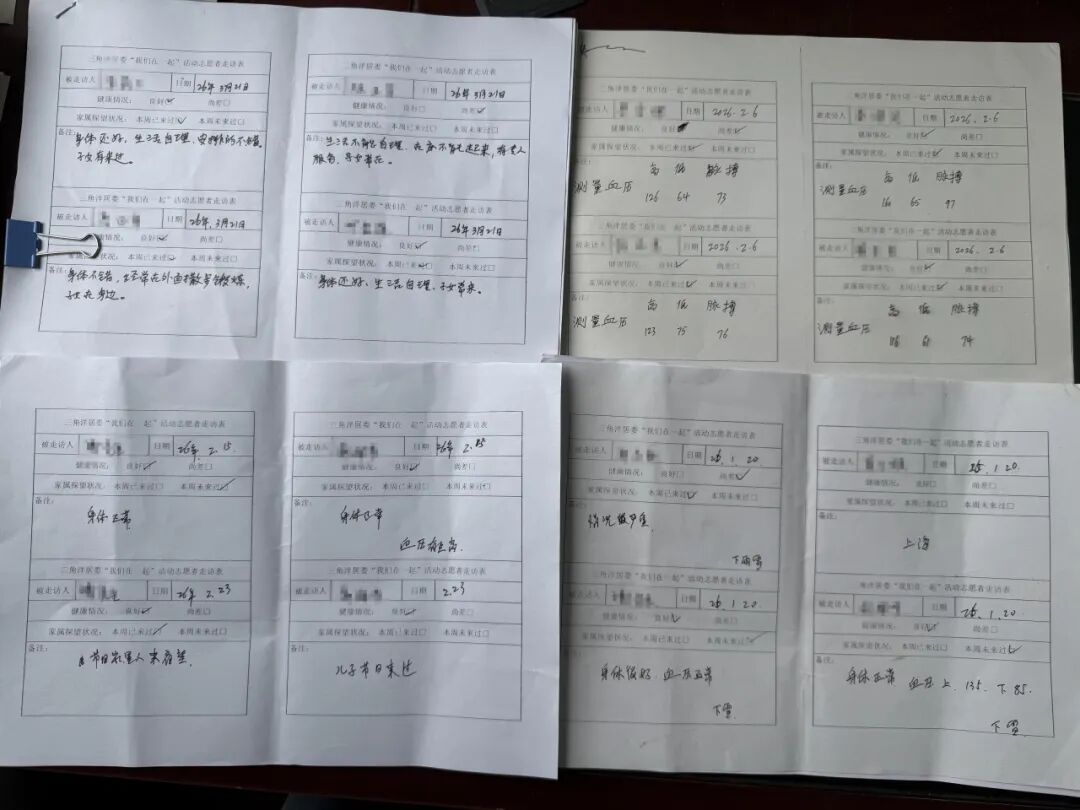 三角洋居委“我们在一起”活动志愿者走访表
被走访人 日期 26年3月21日
健康情况: 良好☑ 尚差□
家属探望状况: 本周已来过☑ 本周未来过□
备注: 身体还好、生活自理、
子女有来过
三角洋居委“我们在一起”活动志愿者走访表
被走访人 日期 26年3月21日
健康情况: 良好□ 尚差☑
家属探望状况: 本周已来过☑ 本周未来过□
备注: 生活不能自理、
服自、子女常在。
三角洋居委“我们在一起”活动志愿者走访表
被走访人 日期 26年3月21日
健康情况: 良好☑ 尚差□
家属探望状况: 本周已来过☑ 本周未来过□
备注: 身体不错,
子女在身边。
三角洋居委“我们在一起”活动志愿者走访表
被走访人 日期 26年3月21日
健康情况: 良好☑ 尚差□
家属探望状况: 本周已来过☑ 本周未来过□
备注: 身体还好、生活自理、子女常来。
三角洋居委“我们在一起”活动志愿者走访表
被走访人 日期 2026.2.6
健康情况: 良好 尚差☑
家属探望状况: 本周已来过☑ 本周未来过□
备注: 高 低 脉搏
测量血压 126 64 73
三角洋居委“我们在一起”活动志愿者走访表
被走访人 日期 2026.2.6
健康情况: 良好☑ 尚差□
家属探望状况: 本周已来过☑ 本周未来过□
备注: 高 低 脉搏
测量血压 65 97
三角洋居委“我们在一起”活动志愿者走访表
被走访人 日期 2026.2.6
健康情况: 良好☑ 尚差□
家属探望状况: 本周已来过☑ 本周未来过□
备注: 高 低 脉搏
测量血压 123 75 76
三角洋居委“我们在一起”活动志愿者走访表
被走访人 日期 2026.2.6
健康情况: 良好☑ 尚差□
家属探望状况: 本周已来过☑ 本周未来过□
备注: 高 低 脉搏
测量血压 74
三角洋居委“我们在一起”活动志愿者走访表
被走访人 日期 26年2.15
健康情况: 良好☑ 尚差□
家属探望状况: 本周已来过□ 本周未来过☑
备注:
身体正常
三角洋居委“我们在一起”活动志愿者走访表
被走访人 日期 26年2.15
健康情况: 良好☑ 尚差□
家属探望状况: 本周已来过□ 本周未来过☑
备注:
身体正常
血压有些高
三角洋居委“我们在一起”活动志愿者走访表
被走访人 日期 26年2.23
健康情况: 良好☑ 尚差□
家属探望状况: 本周已来过☑ 本周未来过□
备注:
节日家里人来看望
三角洋居委“我们在一起”活动志愿者走访表
被走访人 日期 2.23
健康情况: 良好☑ 尚差□
家属探望状况: 本周已来过☑ 本周未来过□
备注:
儿子节日来过
三角洋居委“我们在一起”活动志愿者走访表
被走访人 日期 26.1.20.
健康情况: 良好□ 尚差☑
家属探望状况: 本周已来过☑ 本周未来过□
备注:
情况
下雨雪
三角洋居委“我们在一起”活动志愿者走访表
被走访人 日期 26.1.20.
健康情况: 良好□ 尚差□
家属探望状况: 本周已来过□ 本周未来过□
备注:
上海
三角洋居委“我们在一起”活动志愿者走访表
被走访人 日期 26.1.20.
健康情况: 良好☑ 尚差□
家属探望状况: 本周已来过□ 本周未来过☑
备注:
身体很好 血压正常
下雪.
三角洋居委“我们在一起”活动志愿者走访表
被走访人 日期 26.1.20.
健康情况: 良好☑ 尚差□
家属探望状况: 本周已来过□ 本周未来过☑
备注:
身体正常 血压上.135.下85.
下雪.